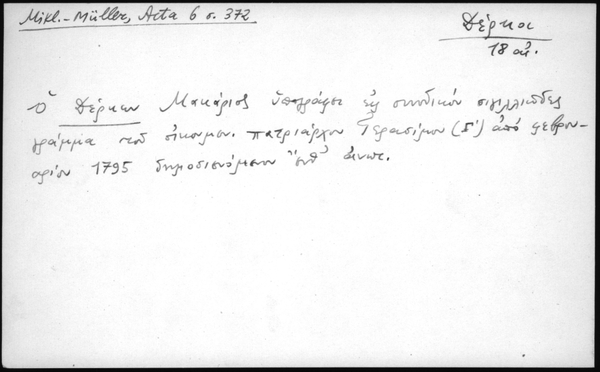 Mikl.-Müller, Acta 6 σ. 372
Δέρκοι
18 αἰ.
Ὁ Δέρκων Μακάριος ὑπογράφει εἰς συνοδικόν σιγιλλιῶδες
γράμμα τοῦ οἰκουμεν. πατριάρχου Γερασίμου (Γ΄) ἀπό φεβρου-
αρίου 1795 δημοσιευόμενον